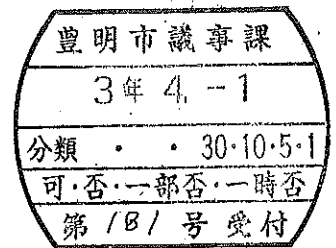 豊明市議事課
3年4.-1
分類 ・ ・ 30・10・5・1
可・否・一部否・一時否
第181号受付